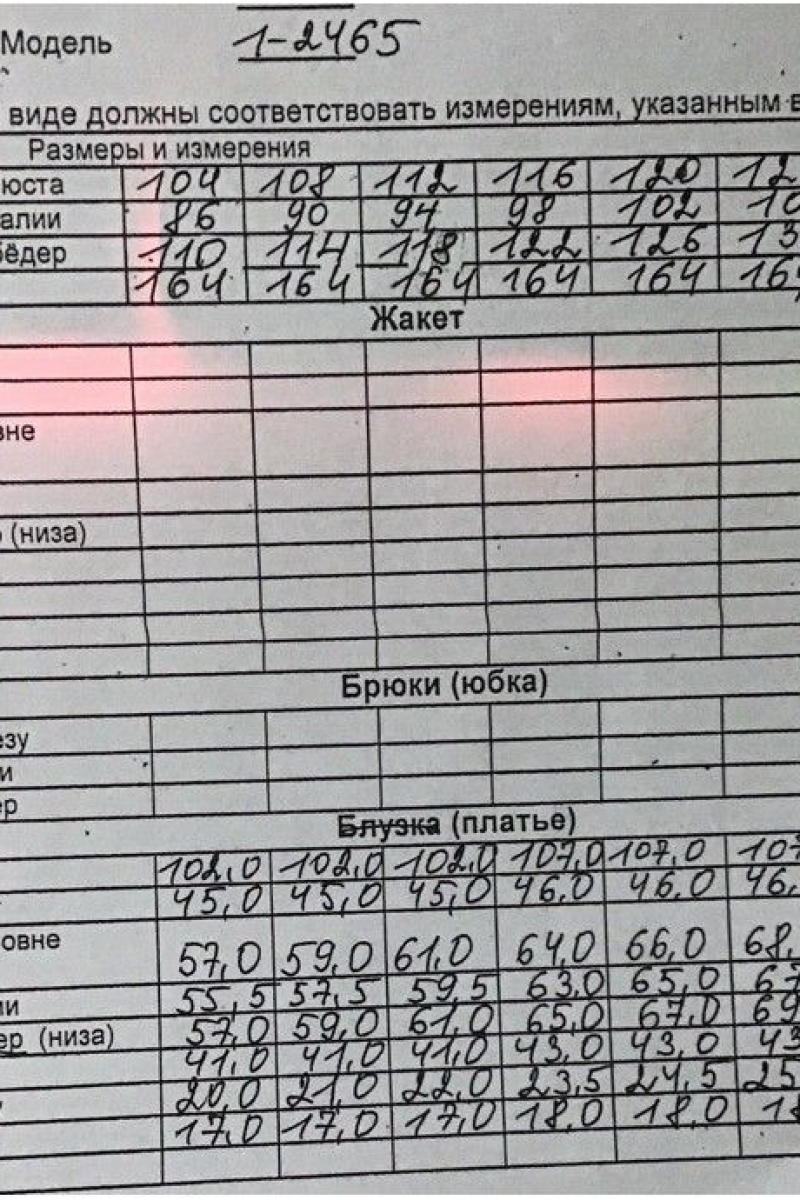 Модель 1-2465
виде должны соответствовать измерениям, указанным в
Размеры и измерения
юста 104 108 112 116 120 12
алии 86 90 94 98 102 10
бёдер 110 114 118 122 126 13
164 164 164 164 164 164
Жакет
вне
(низа)
Брюки (юбка)
езу
и
ер
Блузка (платье)
102,0 102,0 102,0 107,0 107,0 107
45,0 45,0 45,0 46,0 46,0 46,
овне 57,0 59,0 61,0 64,0 66,0 68,
ии 55,5 57,5 59,5 63,0 65,0 67
ер (низа) 57,0 59,0 61,0 65,0 67,0 69
41,0 41,0 41,0 43,0 43,0 43
20,0 21,0 22,0 23,5 24,5 25
17,0 17,0 17,0 18,0 18,0 18